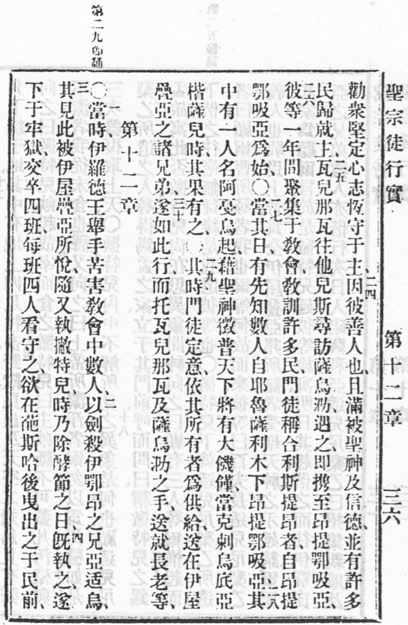 聖宗徒行實 第十二章 三六
勸衆堅定心志恆守于主、二四因彼善人也且滿被聖神及信德、並有許多
民歸就主、二五瓦兒那瓦往他兒斯尋訪薩烏泐、遇之即携至昻提鄂吸亞、
二六彼等一年間聚集于敎會、敎訓許多民、門徒稱合利斯提昻者、自昻提
鄂吸亞爲始、〇二七當其日有先知數人、自耶魯薩利木下昻提鄂吸亞、二八其
中有一人名阿憂烏、起藉聖神徵普天下將有大饑饉、當克剌烏底亞
楷薩兒時其果有之、〇二九其時門徒定意、依其所有者爲供給、送在伊屋
疊亞之諸兄弟、三十遂如此行、而托瓦兒那瓦及薩烏泐之手、送就長老等、
第十二章
一〇當時伊羅德王舉手苦害敎會中數人、二以劍殺伊鄂昻之兄亞适烏、
三其見此被伊屋疊亞所悅、隨又執撇特兒、時乃除酵節之日、四旣執之遂
下于牢獄、交卒四班、每班四人看守之、欲在葩斯哈後曳出之于民前、
第二九節誦